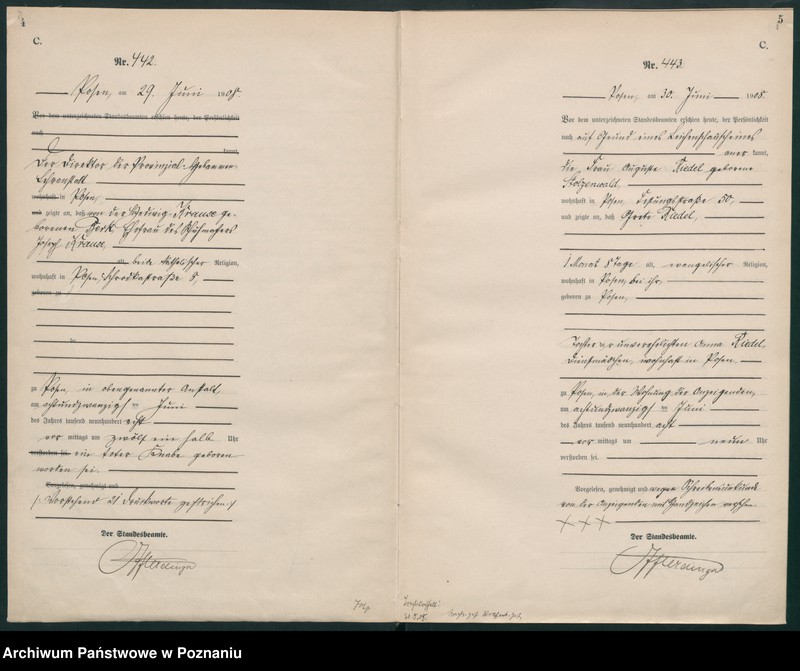 4
C.
Nr. 442.
Posen, am 29. Juni 1908.
Vor dem unterzeichneten Standesbeamten erschien heute, der Persönlichkeit
nach
kannt,
Der Direktor der Provinzial-Hebammen
Lehranstalt
wohnhaft in Posen,
und zeigte an, daß von der Hedwig Krause ge-
borenen Ehefrau des
Joseph Krause,
alt, beide katholischer Religion,
wohnhaft in Posen, Schrodkastraße 5,
geboren zu
zu Posen, in obengenannter Anstalt
am achtundzwanzigsten Juni
des Jahres tausend neunhundert acht
vor mittags um zwölf ein halb Uhr
verstorben sei ein toter Knabe geboren
worden sei.
Vorgelesen, genehmigt und
/. Vorstehend 21 Druckworte gestrichen./
Der Standesbeamte.
5
C.
Nr. 443.
Posen, am 30. Juni 1908.
Vor dem unterzeichneten Standesbeamten erschien heute, der Persönlichkeit
nach auf Grund eines Leichenschauscheines
aner kannt,
die Frau Auguste Riedel geborene
Stolzenwald,
wohnhaft in Posen, Festungsstraße 50,
und zeigte an, daß Grete Riedel,
1 Monat 8 Tage alt, evangelischer Religion,
wohnhaft in Posen, bei ihr,
geboren zu Posen,
Tochter der unverehelichten Anna Riedel,
Dienstmädchen, wohnhaft in Posen.
zu Posen, in der Wohnung der Anzeigenden,
am achtundzwanzigsten Juni
des Jahres tausend neunhundert acht
vor mittags um neun Uhr
verstorben sei.
Vorgelesen, genehmigt und wegen Schreibensunkunde
von der Anzeigenden mit Handzeichen versehen.
+ + +
Der Standesbeamte.
Archiwum Państwowe w Poznaniu